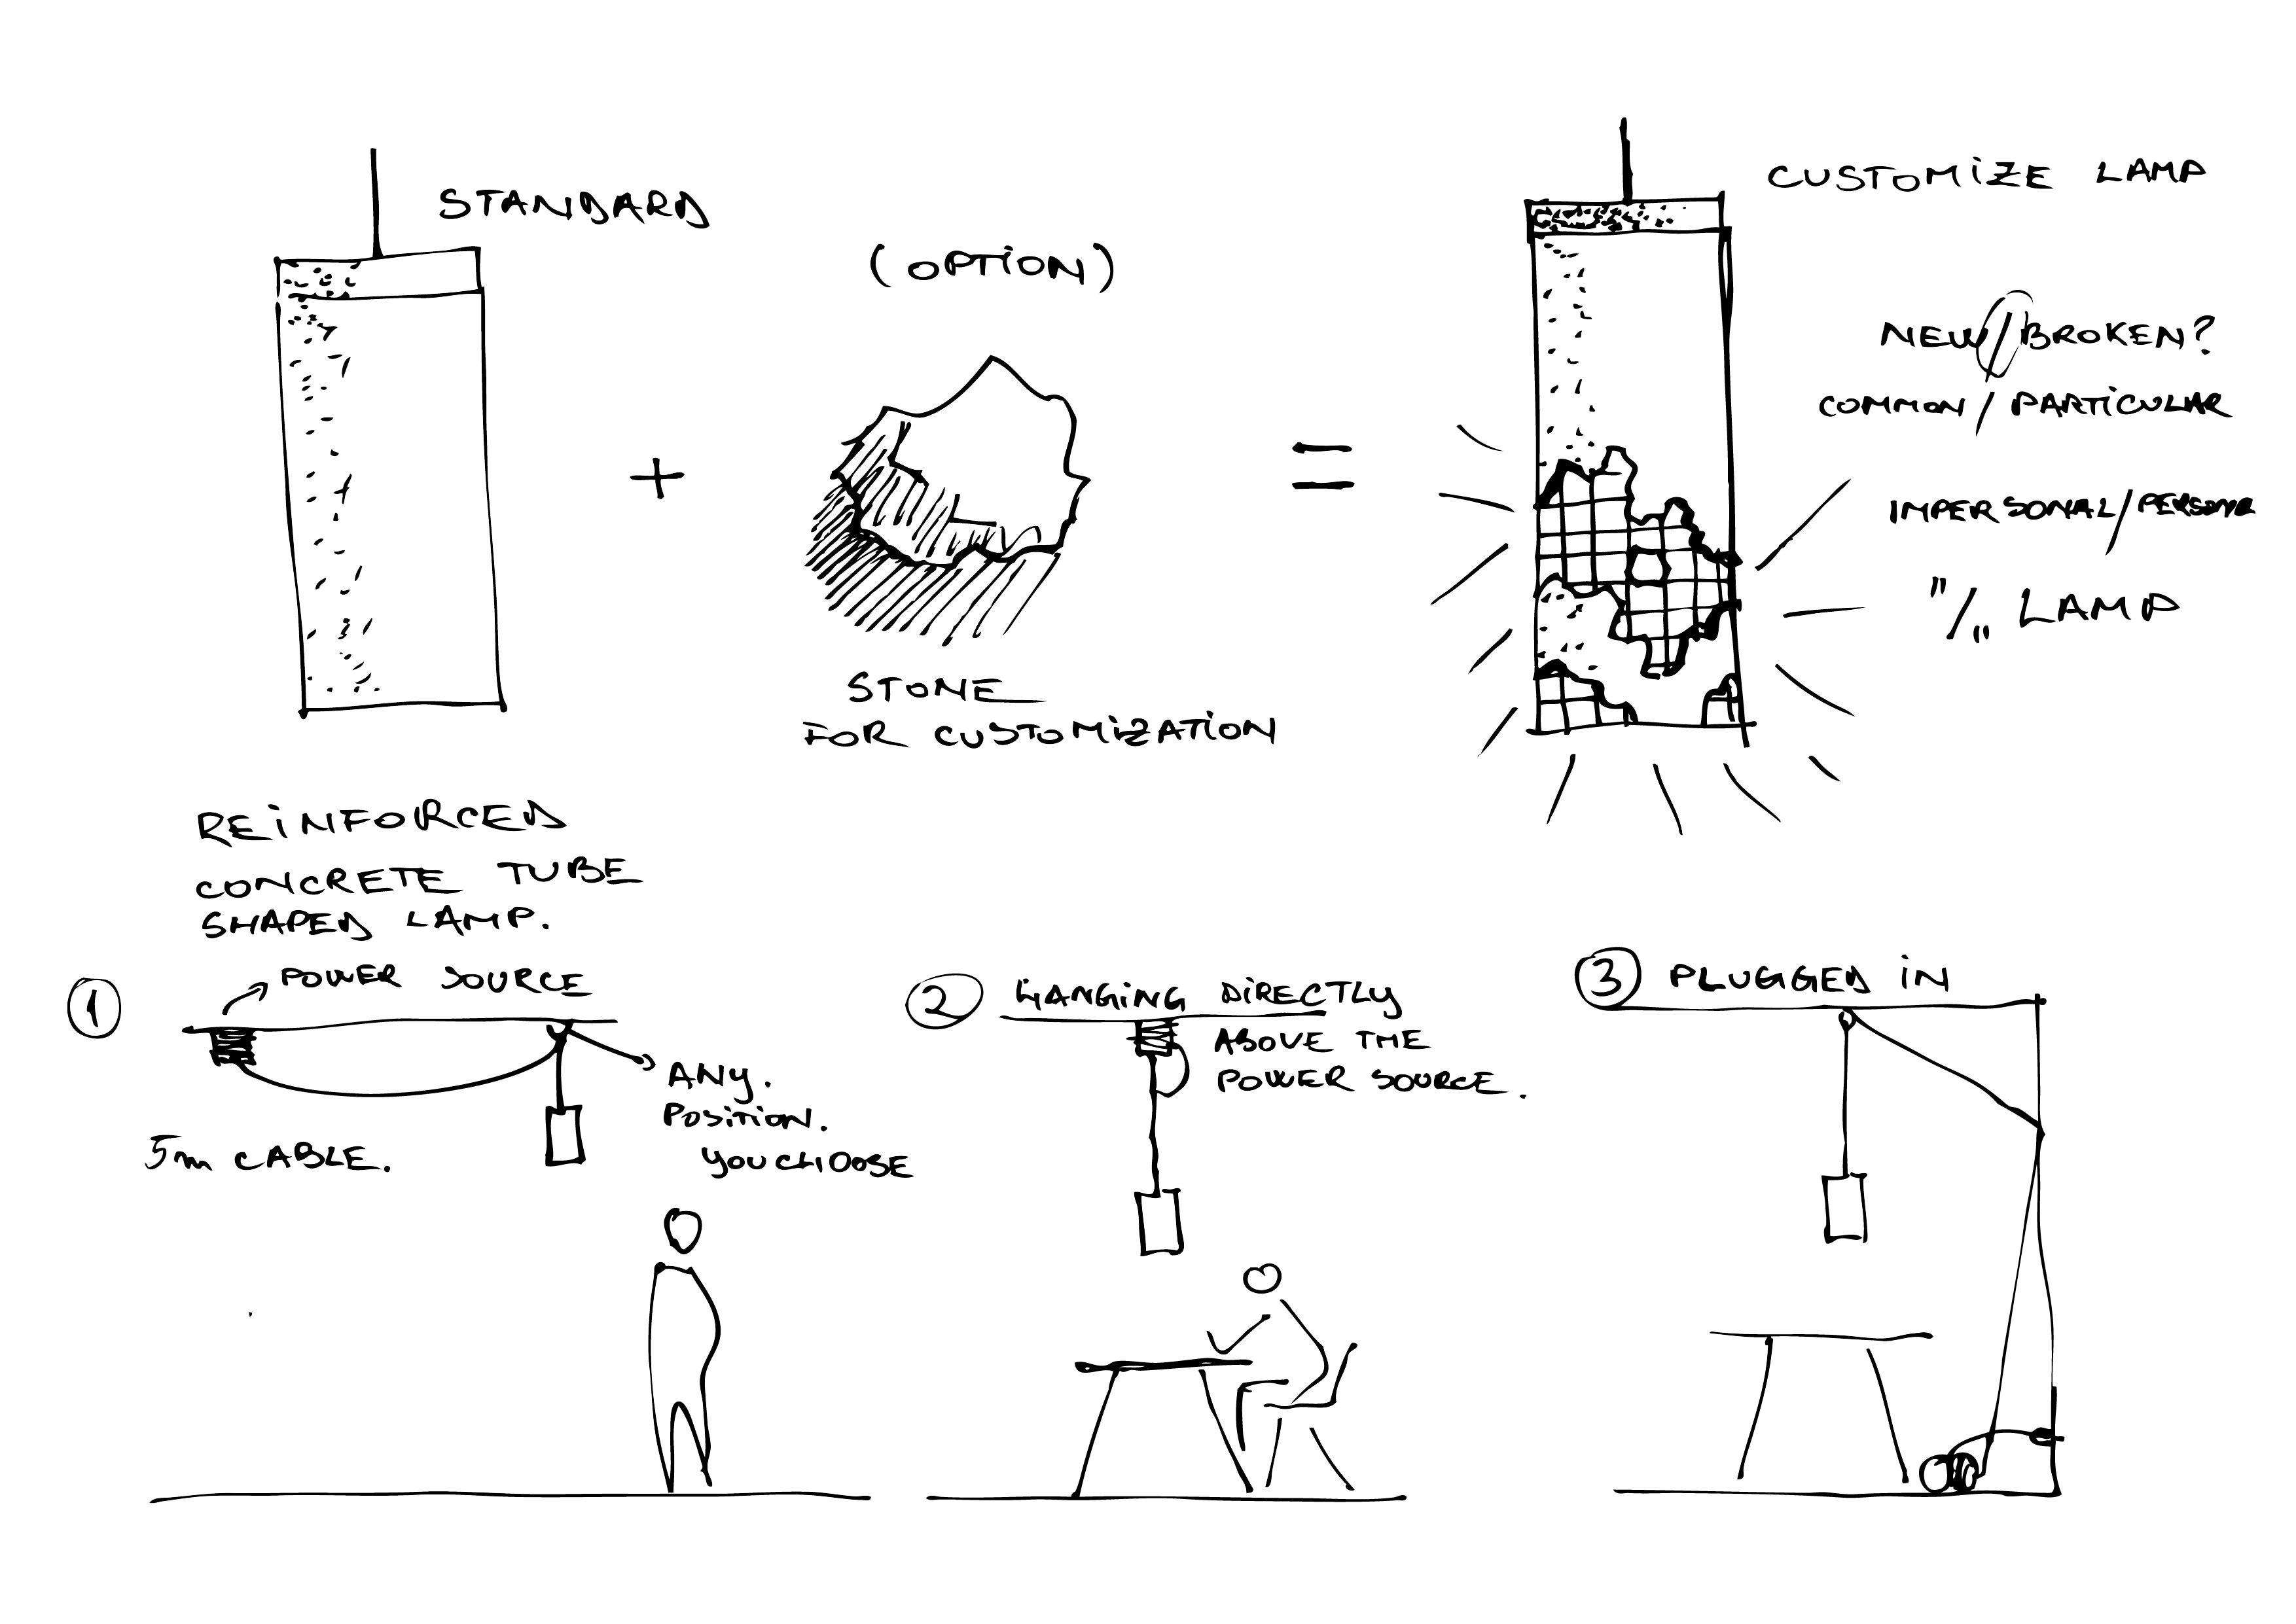 STANDARD
(OPTION)
STONE
FOR CUSTOMIZATION
CUSTOMIZE LAMP
NEW/BROKEN?
COMMON/PARTICULAR
IMPERSONAL/PERSONAL
"/„ LAMP
REINFORCED
CONCRETE TUBE
SHAPED LAMP.
1
POWER SOURCE
ANY.
POSITION.
YOU CHOOSE
5m CABLE.
2 HANGING DIRECTLY
ABOVE THE
POWER SOURCE.
3 PLUGGED IN